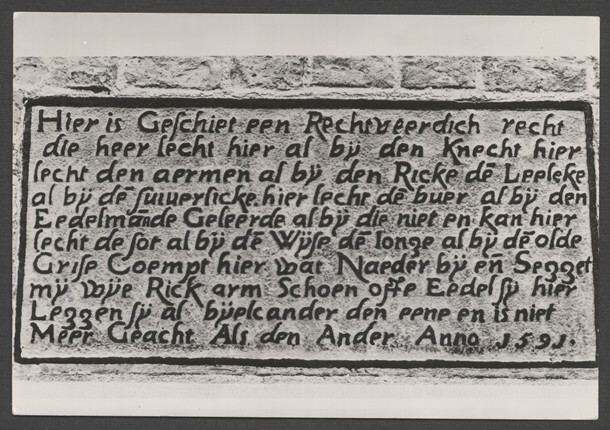 Hier is Geſchiet een Rechtveerdich recht
die heer lecht hier al bÿ den Knecht hier
lecht den aermen al bÿ den Ricke dē Leeleke
al bÿ dē ſuiuerlicke hier lecht dē buer al bÿ den
Eedelmāde Geleerde al bÿ die niet en kan hier
lecht de ſot al bÿ dē Wÿſe dē Ionge al bÿ dē olde
Griſe Coempt hier wat Naeder bÿ en̄ Segget
mÿ wÿe Rick arm Schoen ofte Eedel ſÿ hier
Leggen ſÿ al bÿelcander den eene en is niet
Meer Geacht Als den Ander Anno 1591.